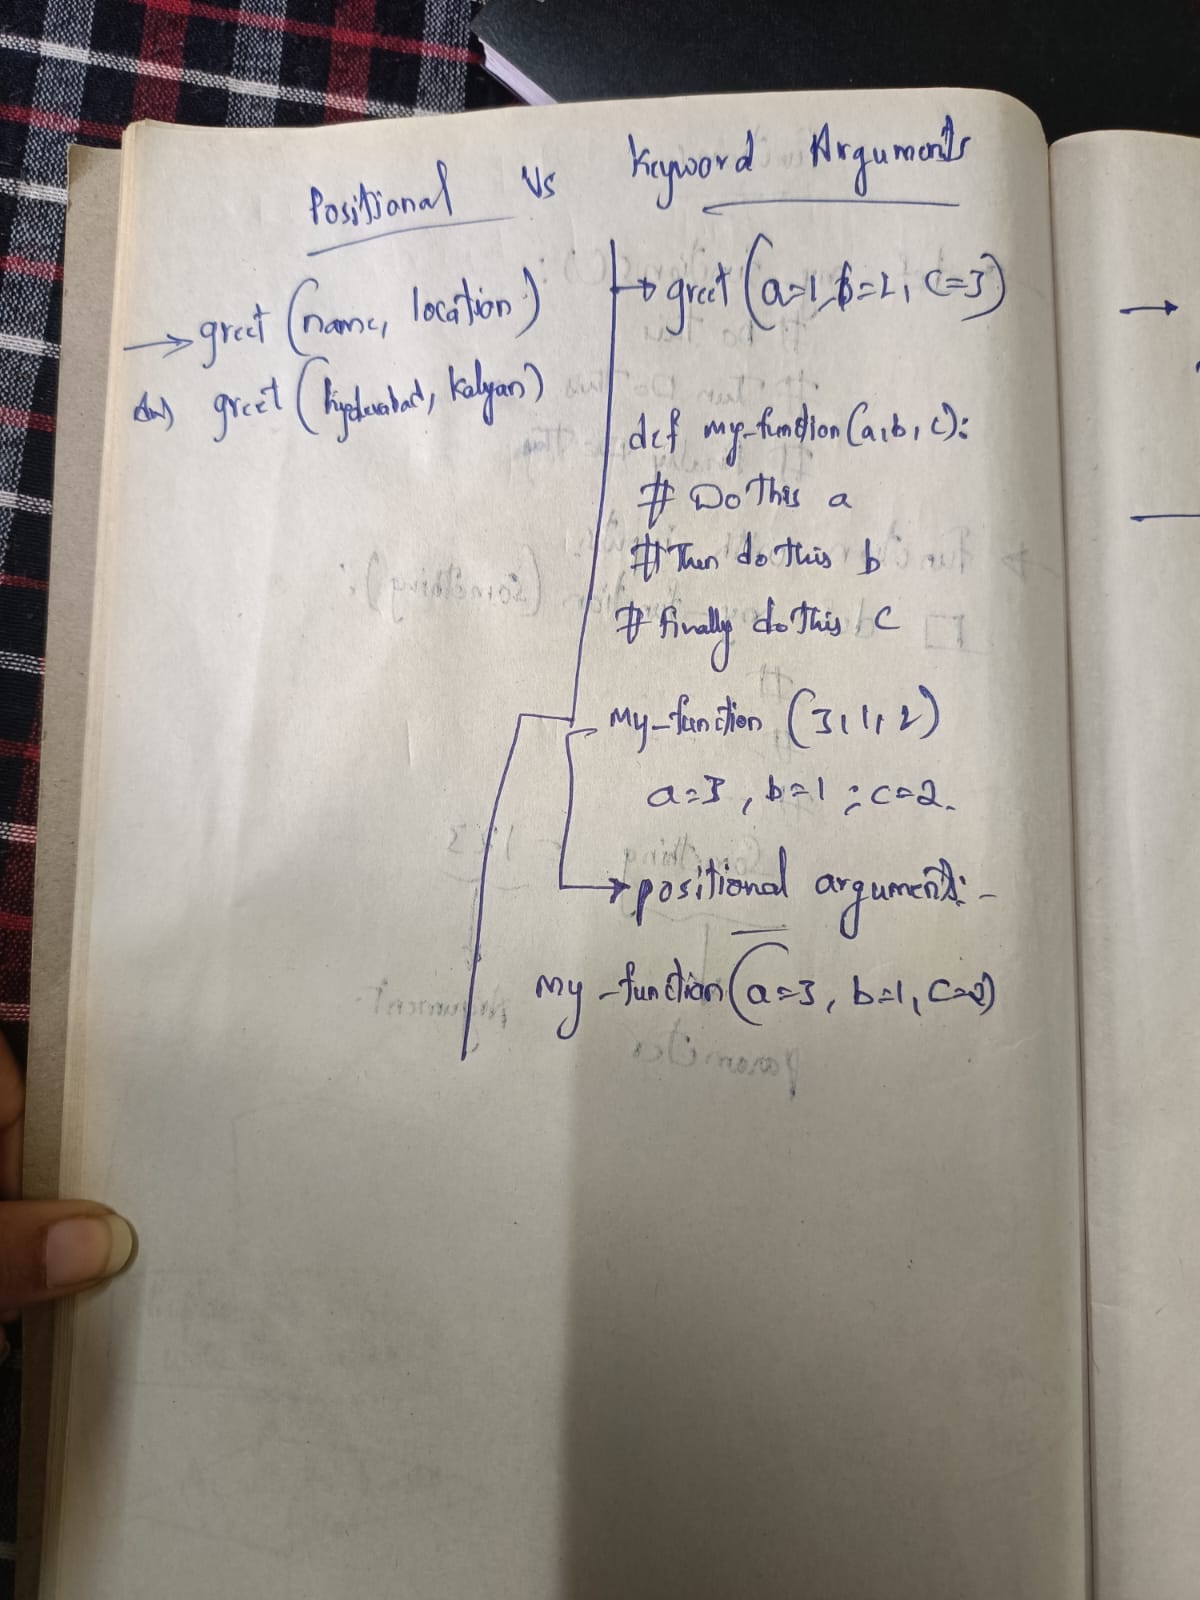 Positional Vs Keyword Arguments
→ greet (name, location)
greet (hyderabad, Kalyan)
→ greet (a=1, b=2, c=3)
def my-function(a,b,c):
# Do This a
# Then do this b
# finally do this c
My-function (3,1,2)
a=3, b=1; c=2.
→ positional arguments:-
My-function (a=3, b=1, c=2)